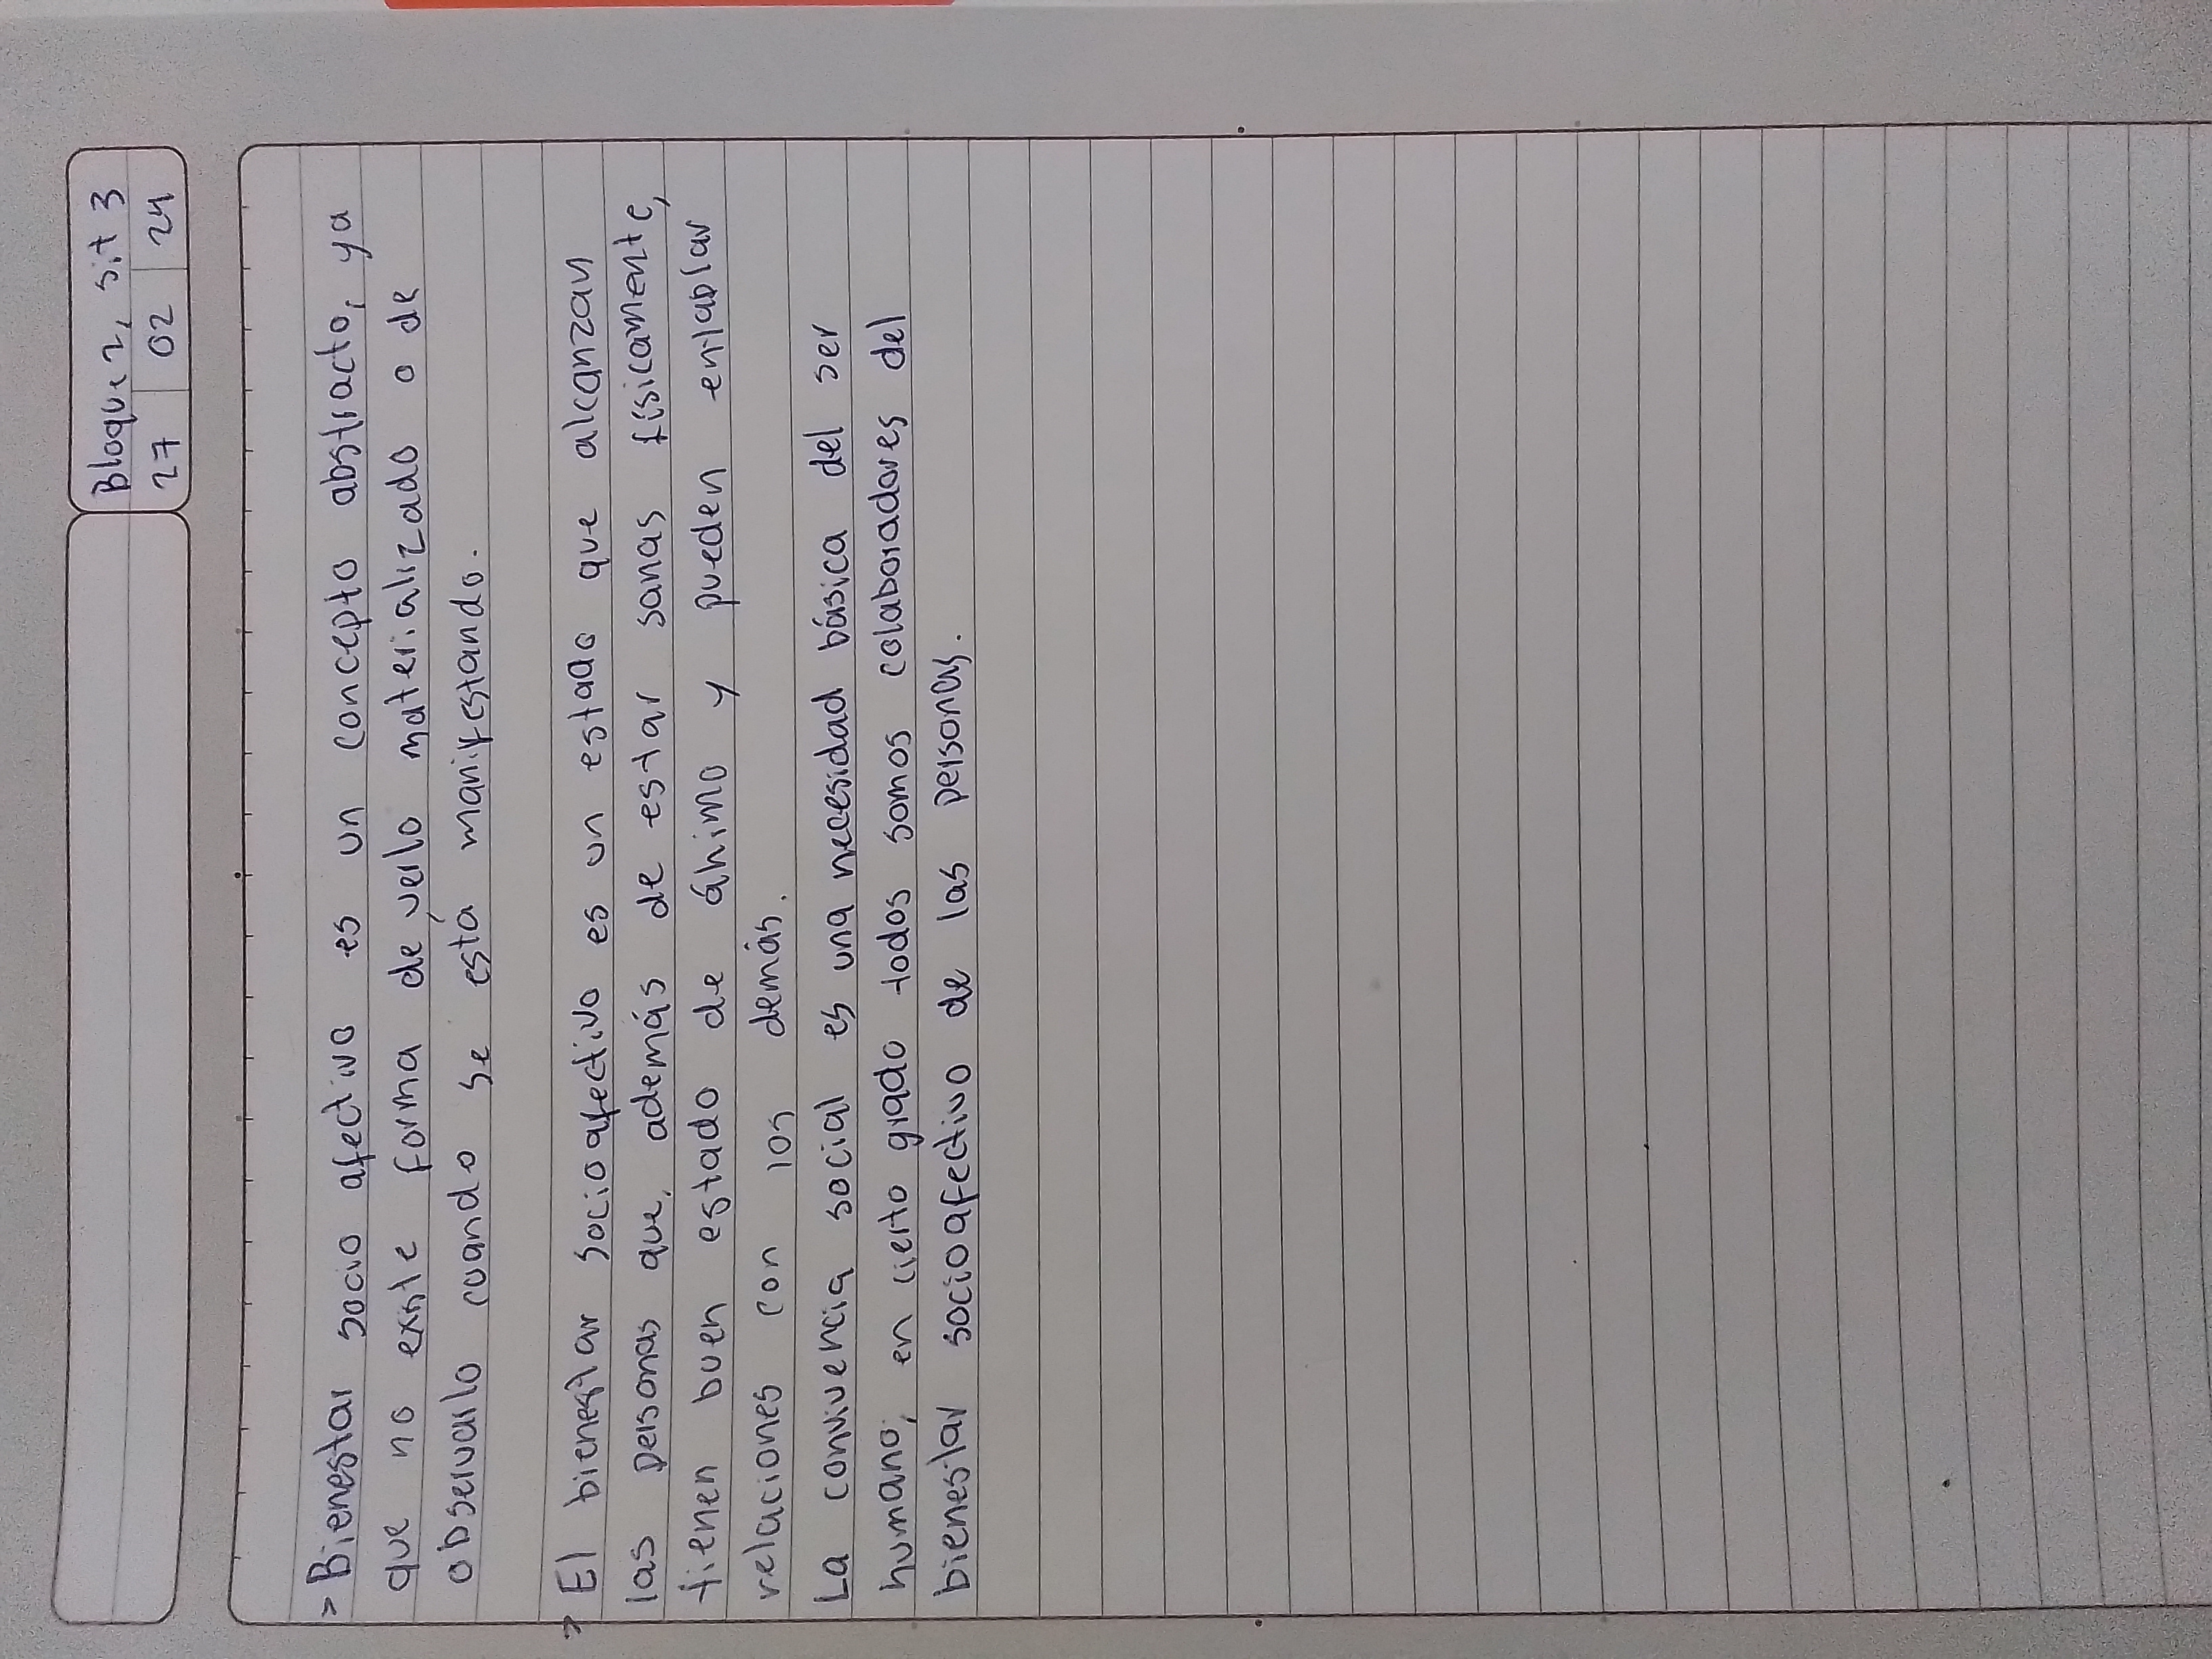 Bloque 2, sit 3
27 02 24
> Bienestar socio afectivo es un concepto abstracto, ya
que no existe forma de verlo materializado o de
observarlo cuando se está manifestando.
> El bienestar socioafectivo es un estado que alcanzan
las personas que, además de estar sanas físicamente,
tienen buen estado de ánimo y pueden entablar
relaciones con los demás.
La convivencia social es una necesidad básica del ser
humano, en cierto grado todos somos colaboradores del
bienestar socioafectivo de las personas.